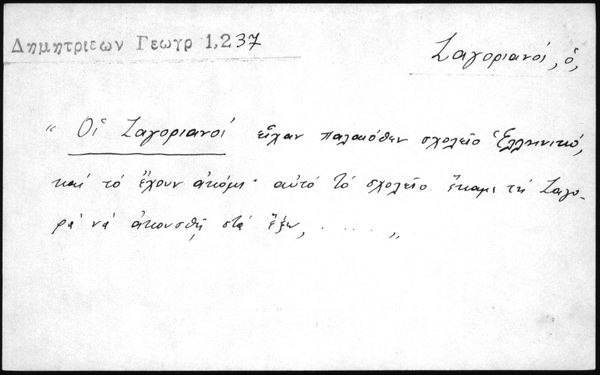 Δημητριεων Γεωγρ 1,237
Ζαγοριανοί, ὁ,
“ Οἱ Ζαγοριανοί εἶχαν παλαιόθεν σχολεῖο Ἑλληνικό,
καί τό ἔχουν ἀκόμι· αὐτό τό σχολεῖο ἔκαμε τή Ζαγο-
ρά νά ἀκουσθῇ στά ἔξω, ..... „